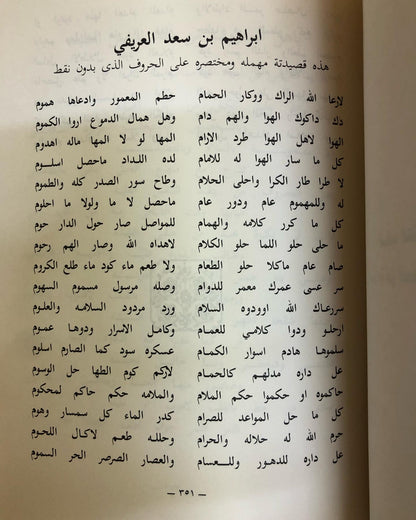 ابراهيم بن سعد العريفي
هذه قصيدتة مهمله ومختصره على الحروف الذى بدون نقط
لارعا الله الراك ووكار الحمام حطم المعمور وادعاها هموم
دك داكوك الهوا والهم دام وهل همال الدموع اروا الكموم
الهوا لاهل الهوا طرد الارام المها لو لا المها ماله اهدوم
كل ما سار الهوا له للامام لده اللداد ماحصل اسلوم
لا طرا طار الكرا واحلى الحلام وطاح سور الصدر كله والطموم
له وللمهموم عام ودور عام ماحصل لا ما ولولا ما احلوم
كل ما كرر كلامه والهمام للمواصل صار حول الدار حوم
ما حلى حلو اللما حلو الكلام لاهداه الله وصار الهم رحوم
صام عام ماكلا حلو الطعام ولا طعم ماء كود ماء طلع الكروم
سر عسى عمرك معمر للدوام وصله مرسول مسموم السهوم
سررعاك الله اوودوه السلام ورد مردود السلامه والعلوم
ارحلو ودوا كلامي للعمام وكامل الاسرار ودوها عموم
سلموها هادم اسوار الكمام عسكره سود كما الصارم اسلوم
عل داره مدلهم كالحمام لاركم كوم الطها حل الوسوم
حاكموه او حكموا حكم الملام والملامه حكم حاكم لمحكوم
كل ما حل المواعد للصرام كدر الماء كل سمسار وهوم
حرم الله له حلاله والحرام وحللـه طعم لاكال اللحوم
عل داره للدهور وللـعسام والعصار الصرصر الحر السموم
— ٣٥١ —